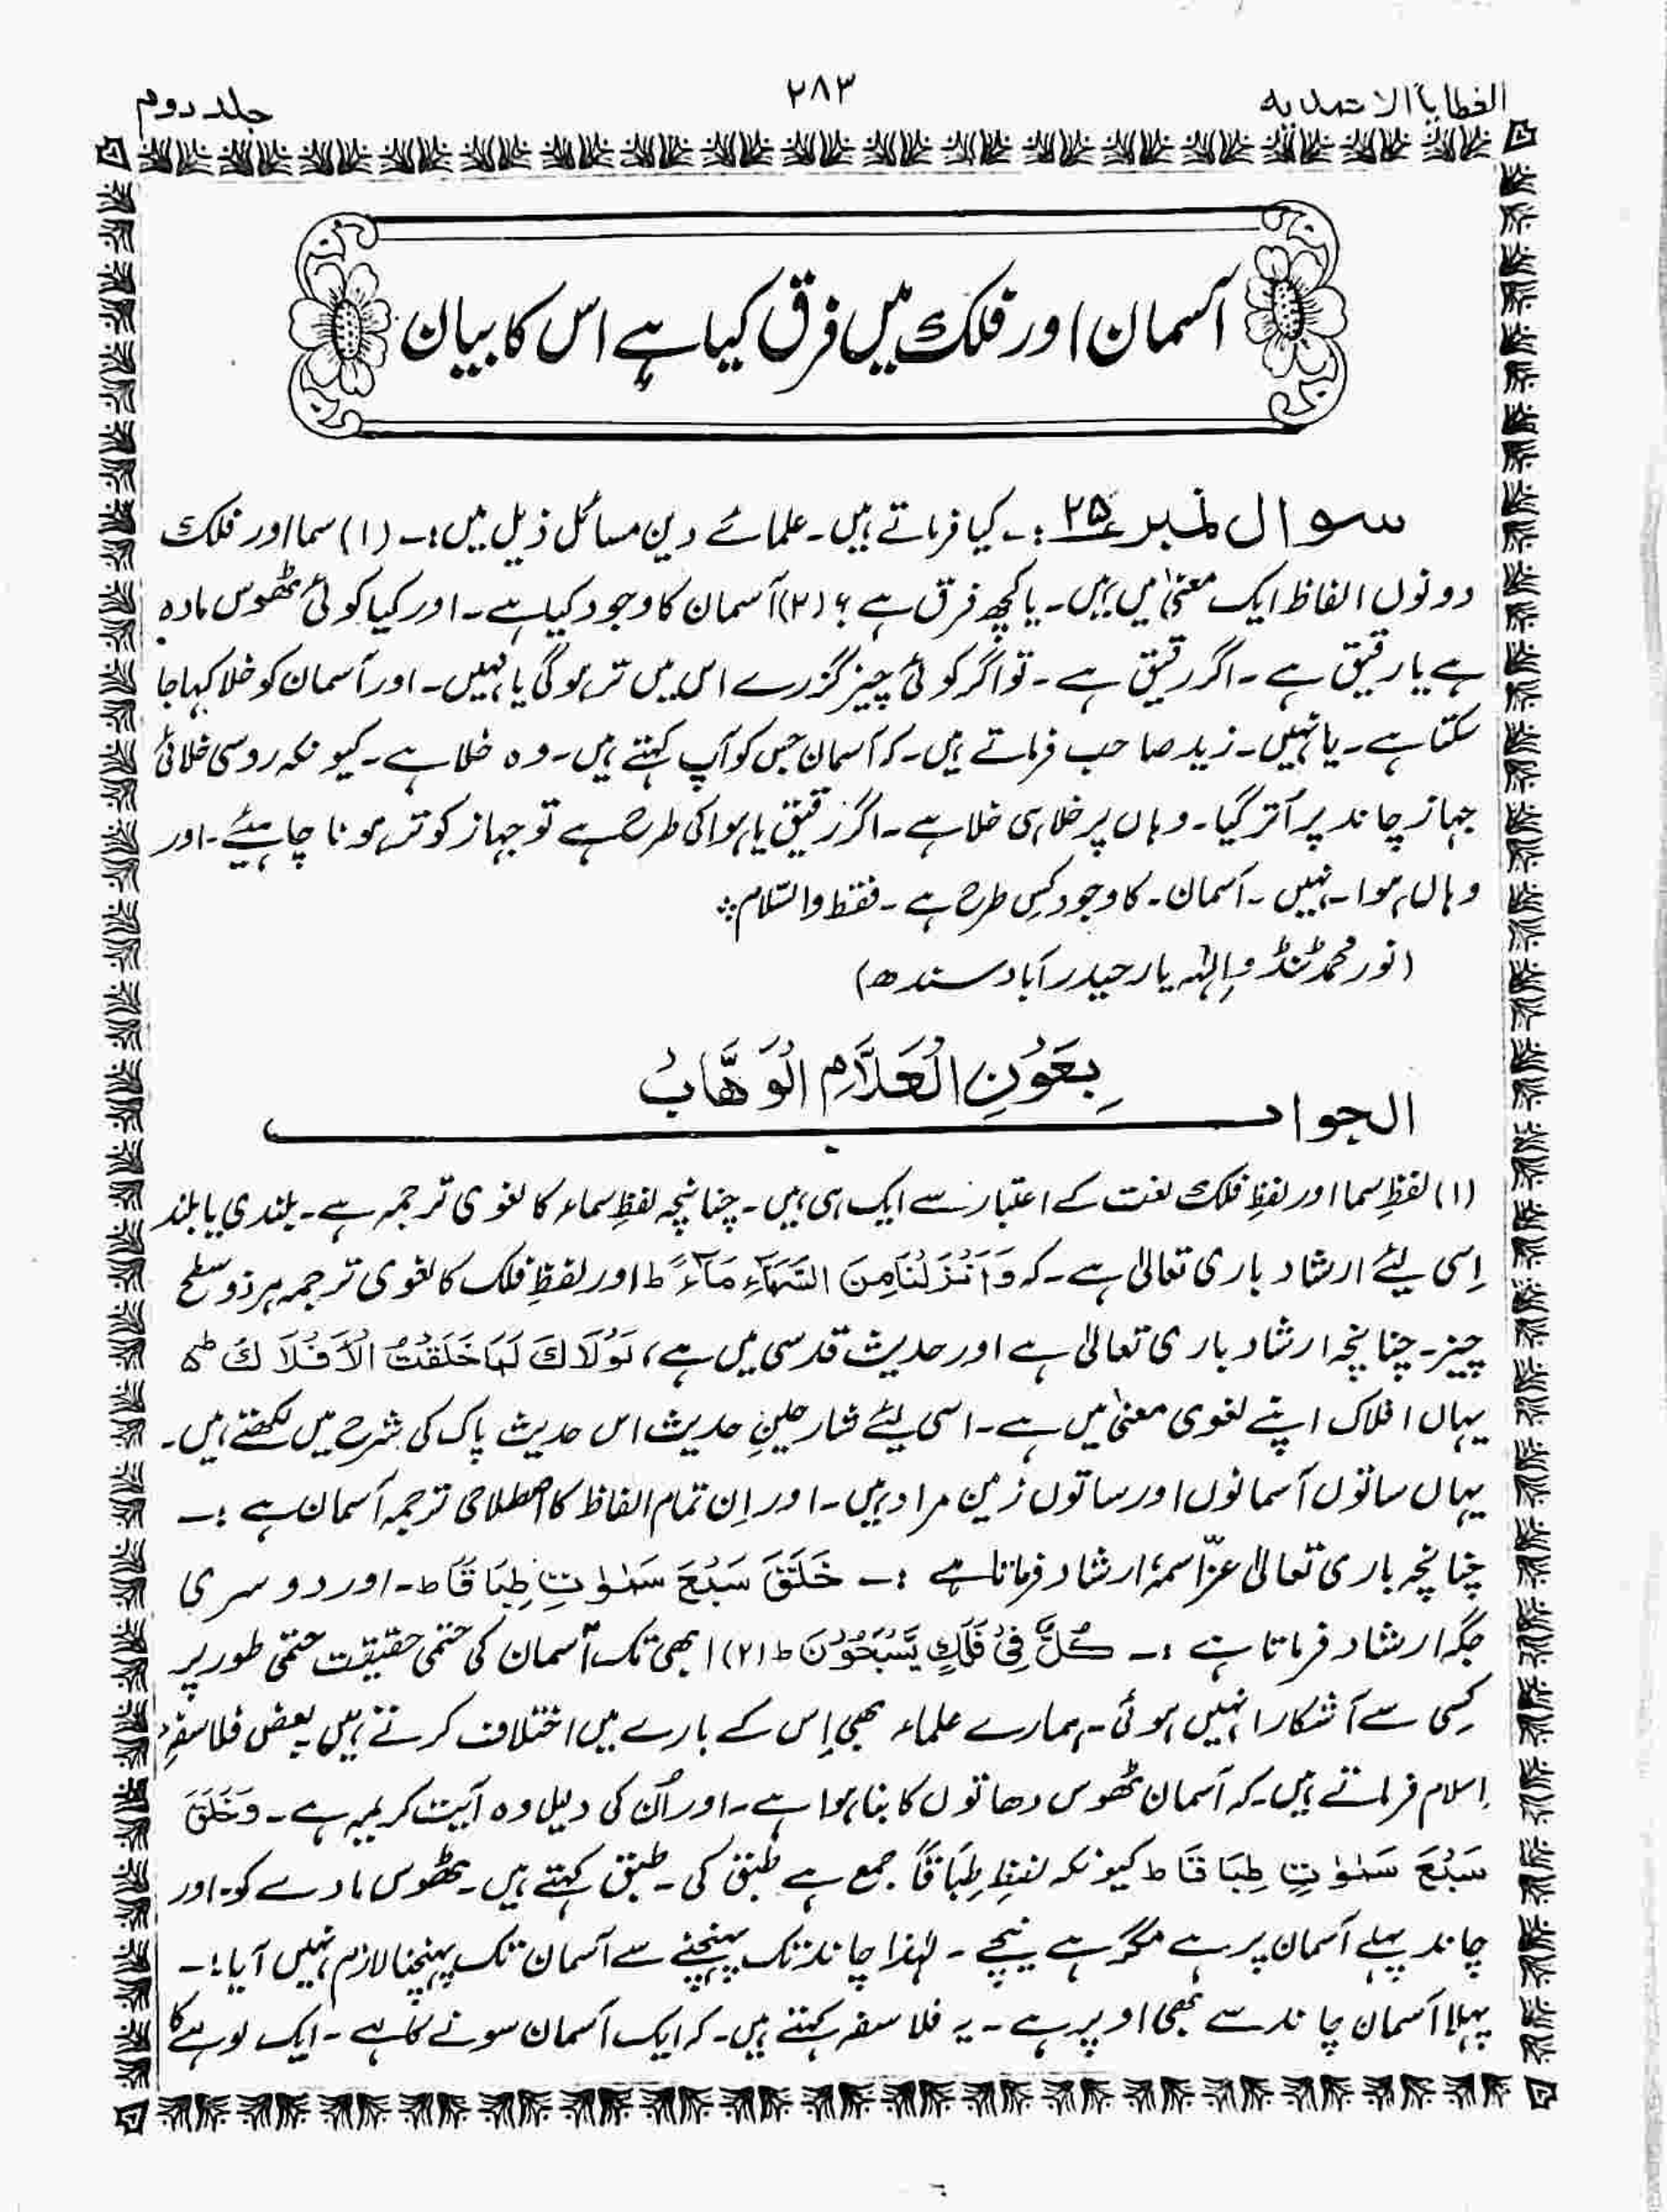 العطایا الاحمدیہ ۲۸۳ جلد دوم
آسمان اور فلک میں فرق کیا ہے اس کا بیان
سوال نمبر ۲۵ :۔ کیا فرماتے ہیں۔ علمائے دین مسائل ذیل میں :۔ (۱) سما اور فلک
دونوں الفاظ ایک معنیٰ میں ہیں۔ یا کچھ فرق ہے ؟ (۲) آسمان کا وجود کیا ہے۔ اور کیا کوئی ٹھوس مادہ
ہے یا رقیق ہے۔ اگر رقیق ہے۔ تو اگر کوئی چیز گزرے اس میں تر ہو گی یا نہیں۔ اور آسمان کو خلا کہا جا
سکتا ہے۔ یا نہیں۔ زید صاحب فرماتے ہیں۔ کہ آسمان جس کو آپ کہتے ہیں۔ وہ خلا ہے۔ کیونکہ روسی خلائی
جہاز چاند پر اُتر گیا۔ وہاں پر خلا ہی خلا ہے۔ اگر رقیق یا ہوا کی طرح ہے تو جہاز کو تر ہونا چاہیئے۔ اور
وہاں ہوا۔ نہیں۔ آسمان۔ کا وجود کِس طرح ہے۔ فقط والسّلام
(نور محمد ٹنڈو الہٰ یار حیدر آباد سندھ)
بِعَوْنِ الْعَلَّامِ الْوَهَّابُ
الجواب
(۱) لفظِ سما اور لفظِ فلک لغت کے اعتبار سے ایک ہی ہیں۔ چنانچہ لفظِ سماء کا لغوی ترجمہ ہے۔ بلندی یا بلند
اِسی لئے ارشاد باری تعالیٰ ہے۔ کہ وَاَنْزَلْنَا مِنَ السَّمَآءِ مَآءً ط اور لفظِ فلک کا لغوی ترجمہ ہر ذو سطح
چیز۔ چنانچہ ارشاد باری تعالیٰ ہے اور حدیث قدسی میں ہے، لَوْلَاكَ لَمَا خَلَقْتُ الْاَفْلَاكَ ط
یہاں افلاک اپنے لغوی معنیٰ میں ہے۔ اسی لئے شارحینِ حدیث اس حدیث پاک کی شرح میں لکھتے ہیں۔
یہاں ساتوں آسمانوں اور ساتوں زمین مراد ہیں۔ اور اِن تمام الفاظ کا اصطلاحی ترجمہ آسمان ہے :۔
چنانچہ باری تعالیٰ عزّ اسمہٗ ارشاد فرماتا ہے :۔ خَلَقَ سَبْعَ سَمٰوٰتٍ طِبَاقًا ط۔ اور دوسری
جگہ ارشاد فرماتا ہے :۔ كُلٌّ فِیْ فَلَكٍ یَّسْبَحُوْنَ ط (۲) ابھی تک آسمان کی حتمی حقیقت حتمی طور پر
کِسی سے آشکارا نہیں ہوئی۔ ہمارے علماء بھی اِس کے بارے میں اختلاف کرتے ہیں بعض فلاسفرِ
اِسلام فرماتے ہیں۔ کہ آسمان ٹھوس دھاتوں کا بنا ہوا ہے۔ اور اُن کی دلیل وہ آیت کریمہ ہے۔ وَخَلَقَ
سَبْعَ سَمٰوٰتٍ طِبَاقًا ط کیونکہ لفظِ طِبَاقًا جمع ہے طبق کی۔ طبق کہتے ہیں۔ ٹھوس مادے کو۔ اور
چاند پہلے آسمان پر ہے مگر ہے نیچے۔ لہٰذا چاند تک پہنچنے سے آسمان تک پہنچنا لازم نہیں آیا :۔
پہلا آسمان چاند سے بھی اوپر ہے۔ یہ فلاسفر کہتے ہیں۔ کہ ایک آسمان سونے کا ہے۔ ایک لوہے کا